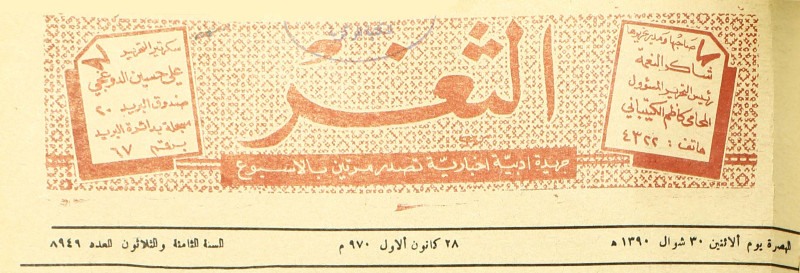 صاحبها ومدير تحريرها
شاكر النعمة
رئيس التحرير المسؤول
المحامي كاظم الكتيباني
هاتف : ٤٣٢٢
الثغر
جريدة ادبية اخبارية تصدر مرتين بالاسبوع
سكرتير التحرير
علي حسين الدوغجي
صندوق البريد ٢٠
مسجلة بدائرة البريد
برقم ٦٧
البصرة يوم ألاثنين ٣٠ شوال ١٣٩٠ ه
٢٨ كانون ألاول ٩٧٠ م
السنة الثامنة والثلاثون العدد ٨٩٤٩